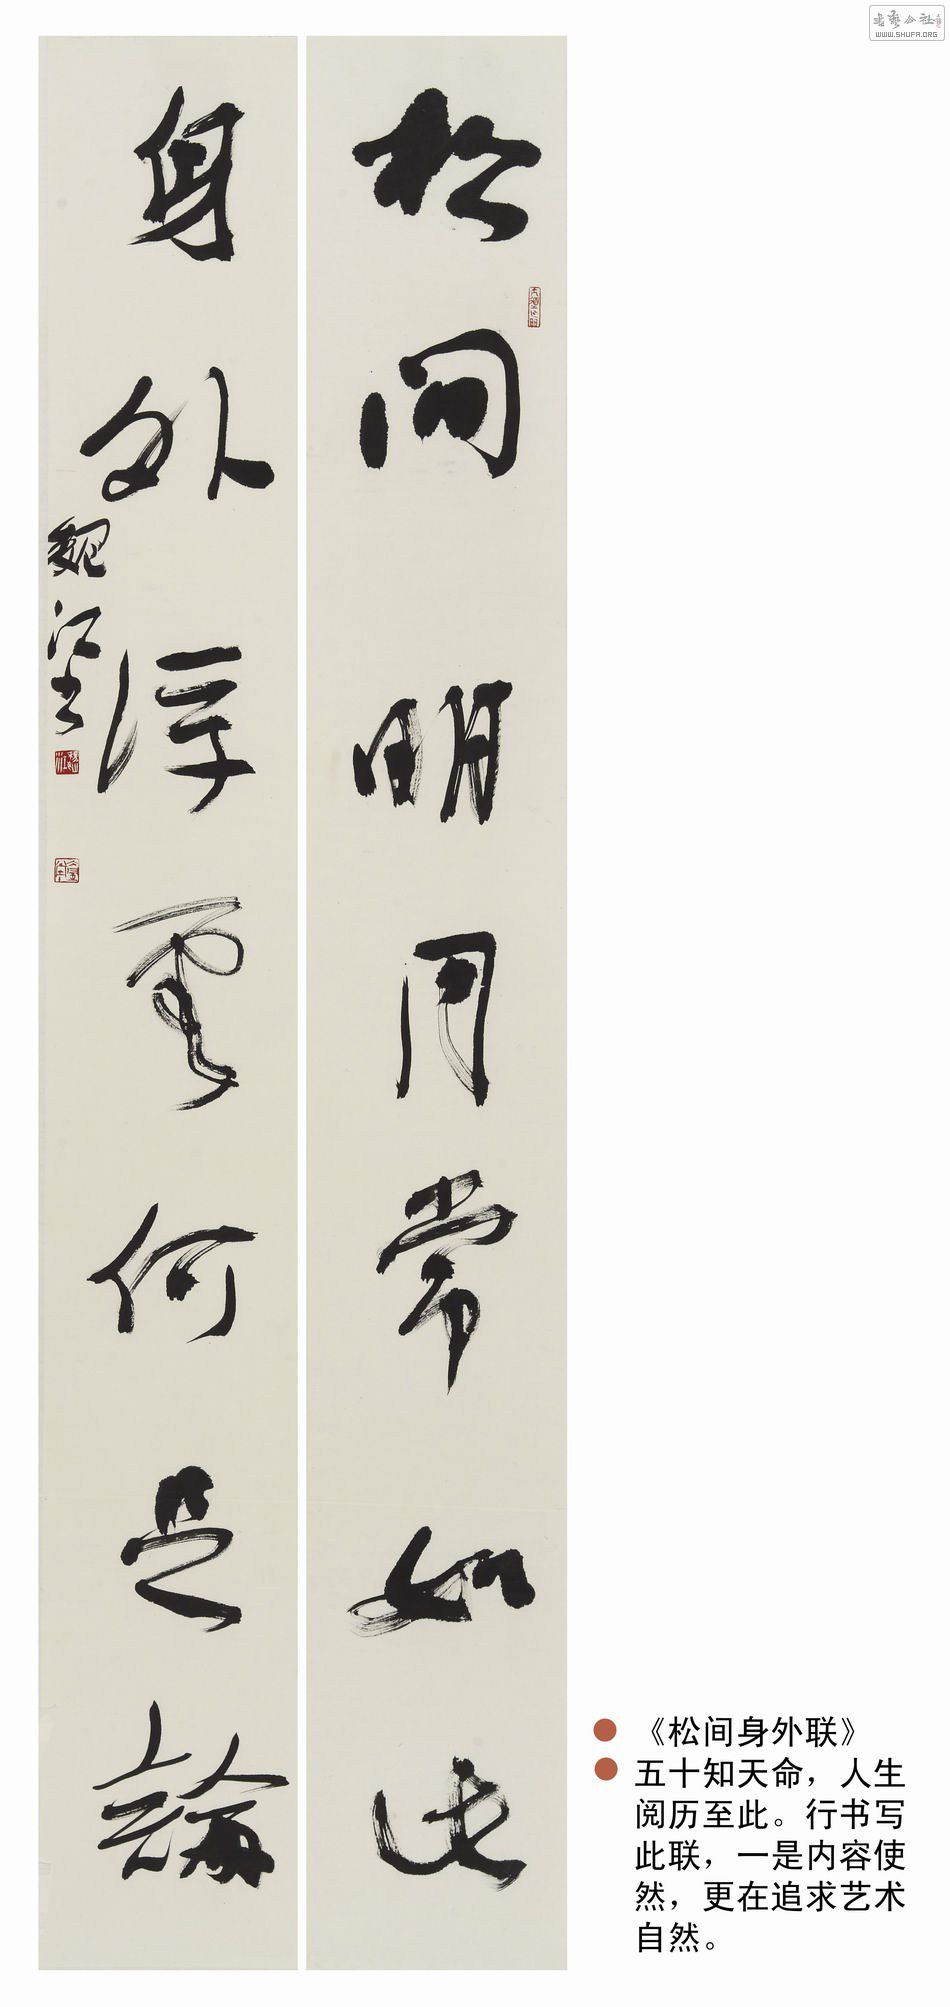 松间明月常如此
身外浮云何足論
魏江书
《松间身外联》
五十知天命，人生
阅历至此。行书写
此联，一是内容使
然，更在追求艺术
自然。
WWW.SHUFA.ORG